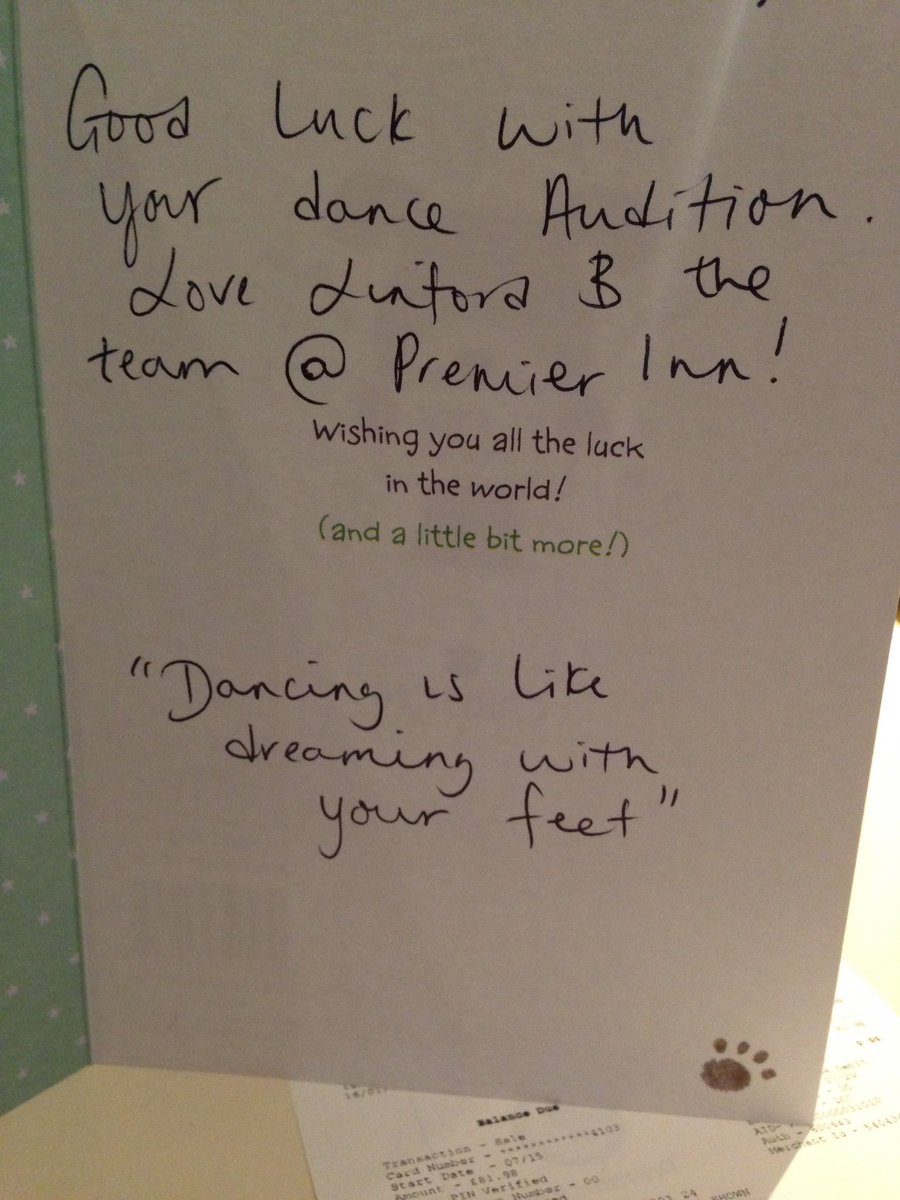 Good Luck with
your dance Audition.
Love Linford & the
team @ Premier Inn!
Wishing you all the luck
in the world!
(and a little bit more!)
"Dancing is like
dreaming with
your feet"
Balance Due
Transaction - Sale
Card Number - ************4103
Start Date - 07/15
Amount - £81.98
PIN Verified
Number - 00